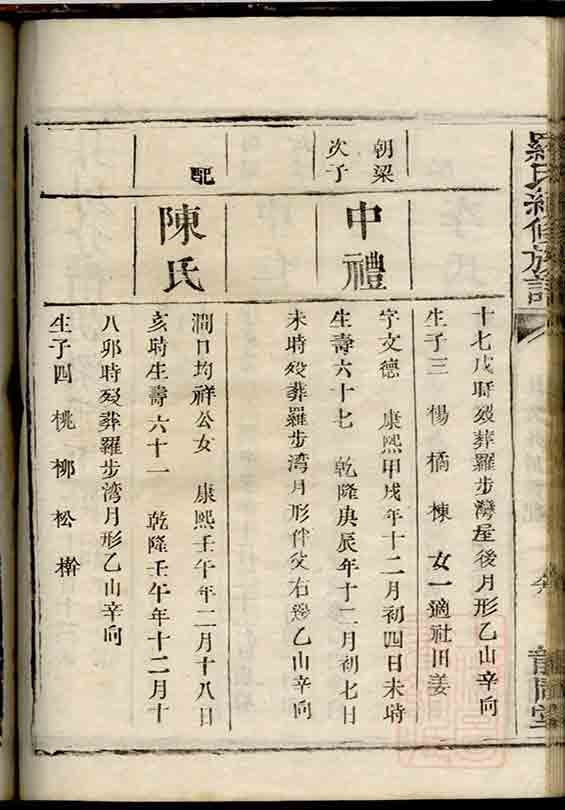 羅氏續修族譜
龍門堂
十七戌時歿葬羅步灣屋後月形乙山辛向
生子三 楊 橘 棟 女一適社田姜
朝梁
次子
中禮
字文德 康熙甲戌年十二月初四日未時
生壽六十七 乾隆庚辰年十二月初七日
未時歿葬羅步湾月形伴父右邊乙山辛向
配
陳氏
澗口均祥公女 康熙壬午年二月十八日
亥時生壽六十一 乾隆壬午年十二月十
八卯時歿葬羅步湾月形乙山辛向
生子四 桃 柳 松